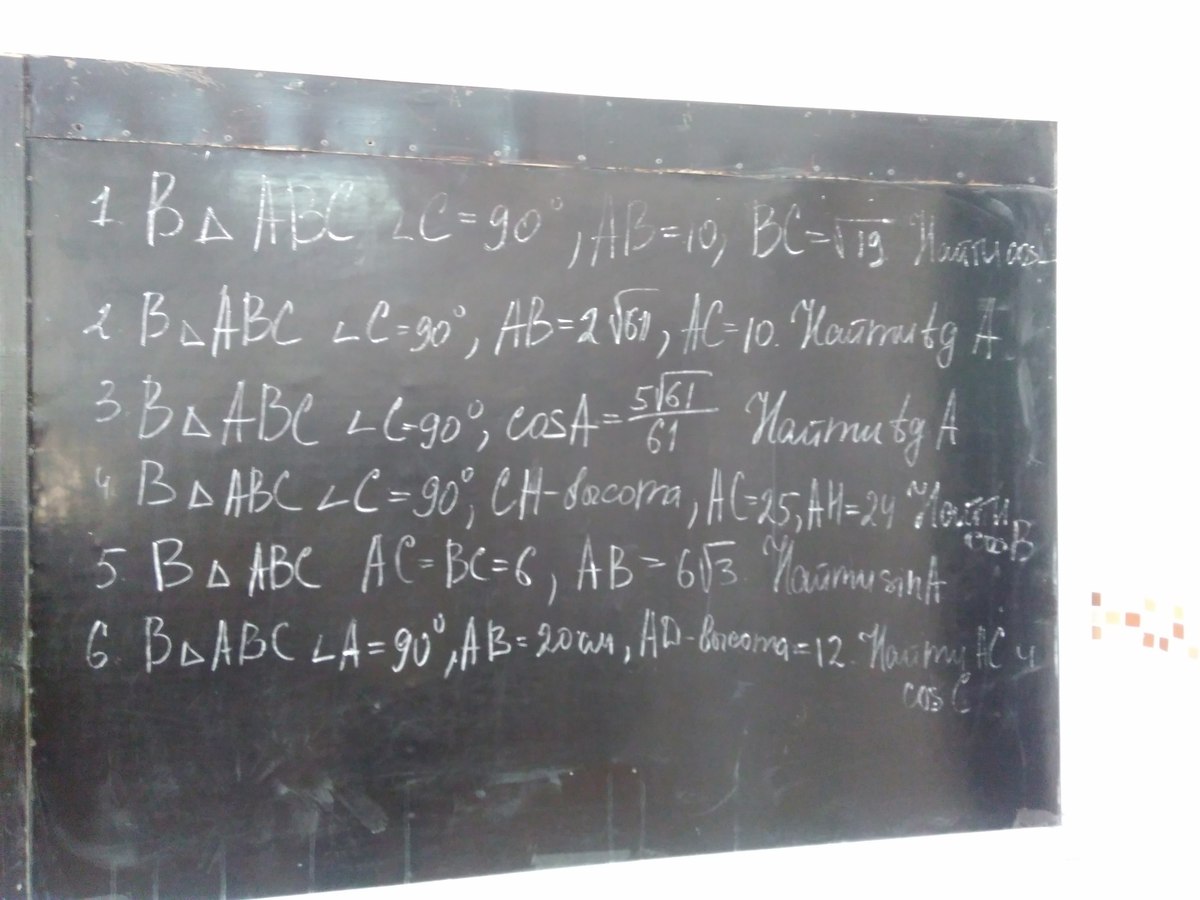 1. В △ ABC ∠C=90°, AB=10, BC=√19 Найти cos
2. В △ABC ∠C=90°, AB=2√61, AC=10. Найти tg A
3. В △ABC ∠C=90°, cosA=5√61/61 Найти tg A
4 В △ABC ∠C=90°, CH-высота, AC=25, AH=24 Найти
cos B
5. В △ ABC AC=BC=6, AB=6√3. Найти sin A
6. В △ABC ∠A=90°, AB=20см, AD-высота=12. Найти AC и
cos C